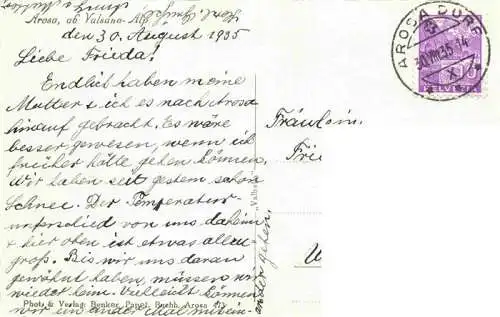 Arosa, ob. Valsana-
den 30. August 1935
Liebe Frieda!
Endlich haben meine
Mutter & ich es nach Arosa
hinauf gebracht. Es wäre
besser gewesen, wenn ich
früher hätte gehen können,
Wir haben seit gestern schon
Schnee. Der Temperatur-
unterschied von uns daheim
& hier oben ist etwas allzu
groß. Bis wir uns daran
gewöhnt haben, müssen wir
wieder heim. Vielleicht können
wir ein ander Mal mitein-
ander gehen.
Photo & Verlag: Benker, Papet. Buchh. Arosa
„Valsana“
AROSA DORF
30.VIII.35.14
HELVETIA
Fräulein